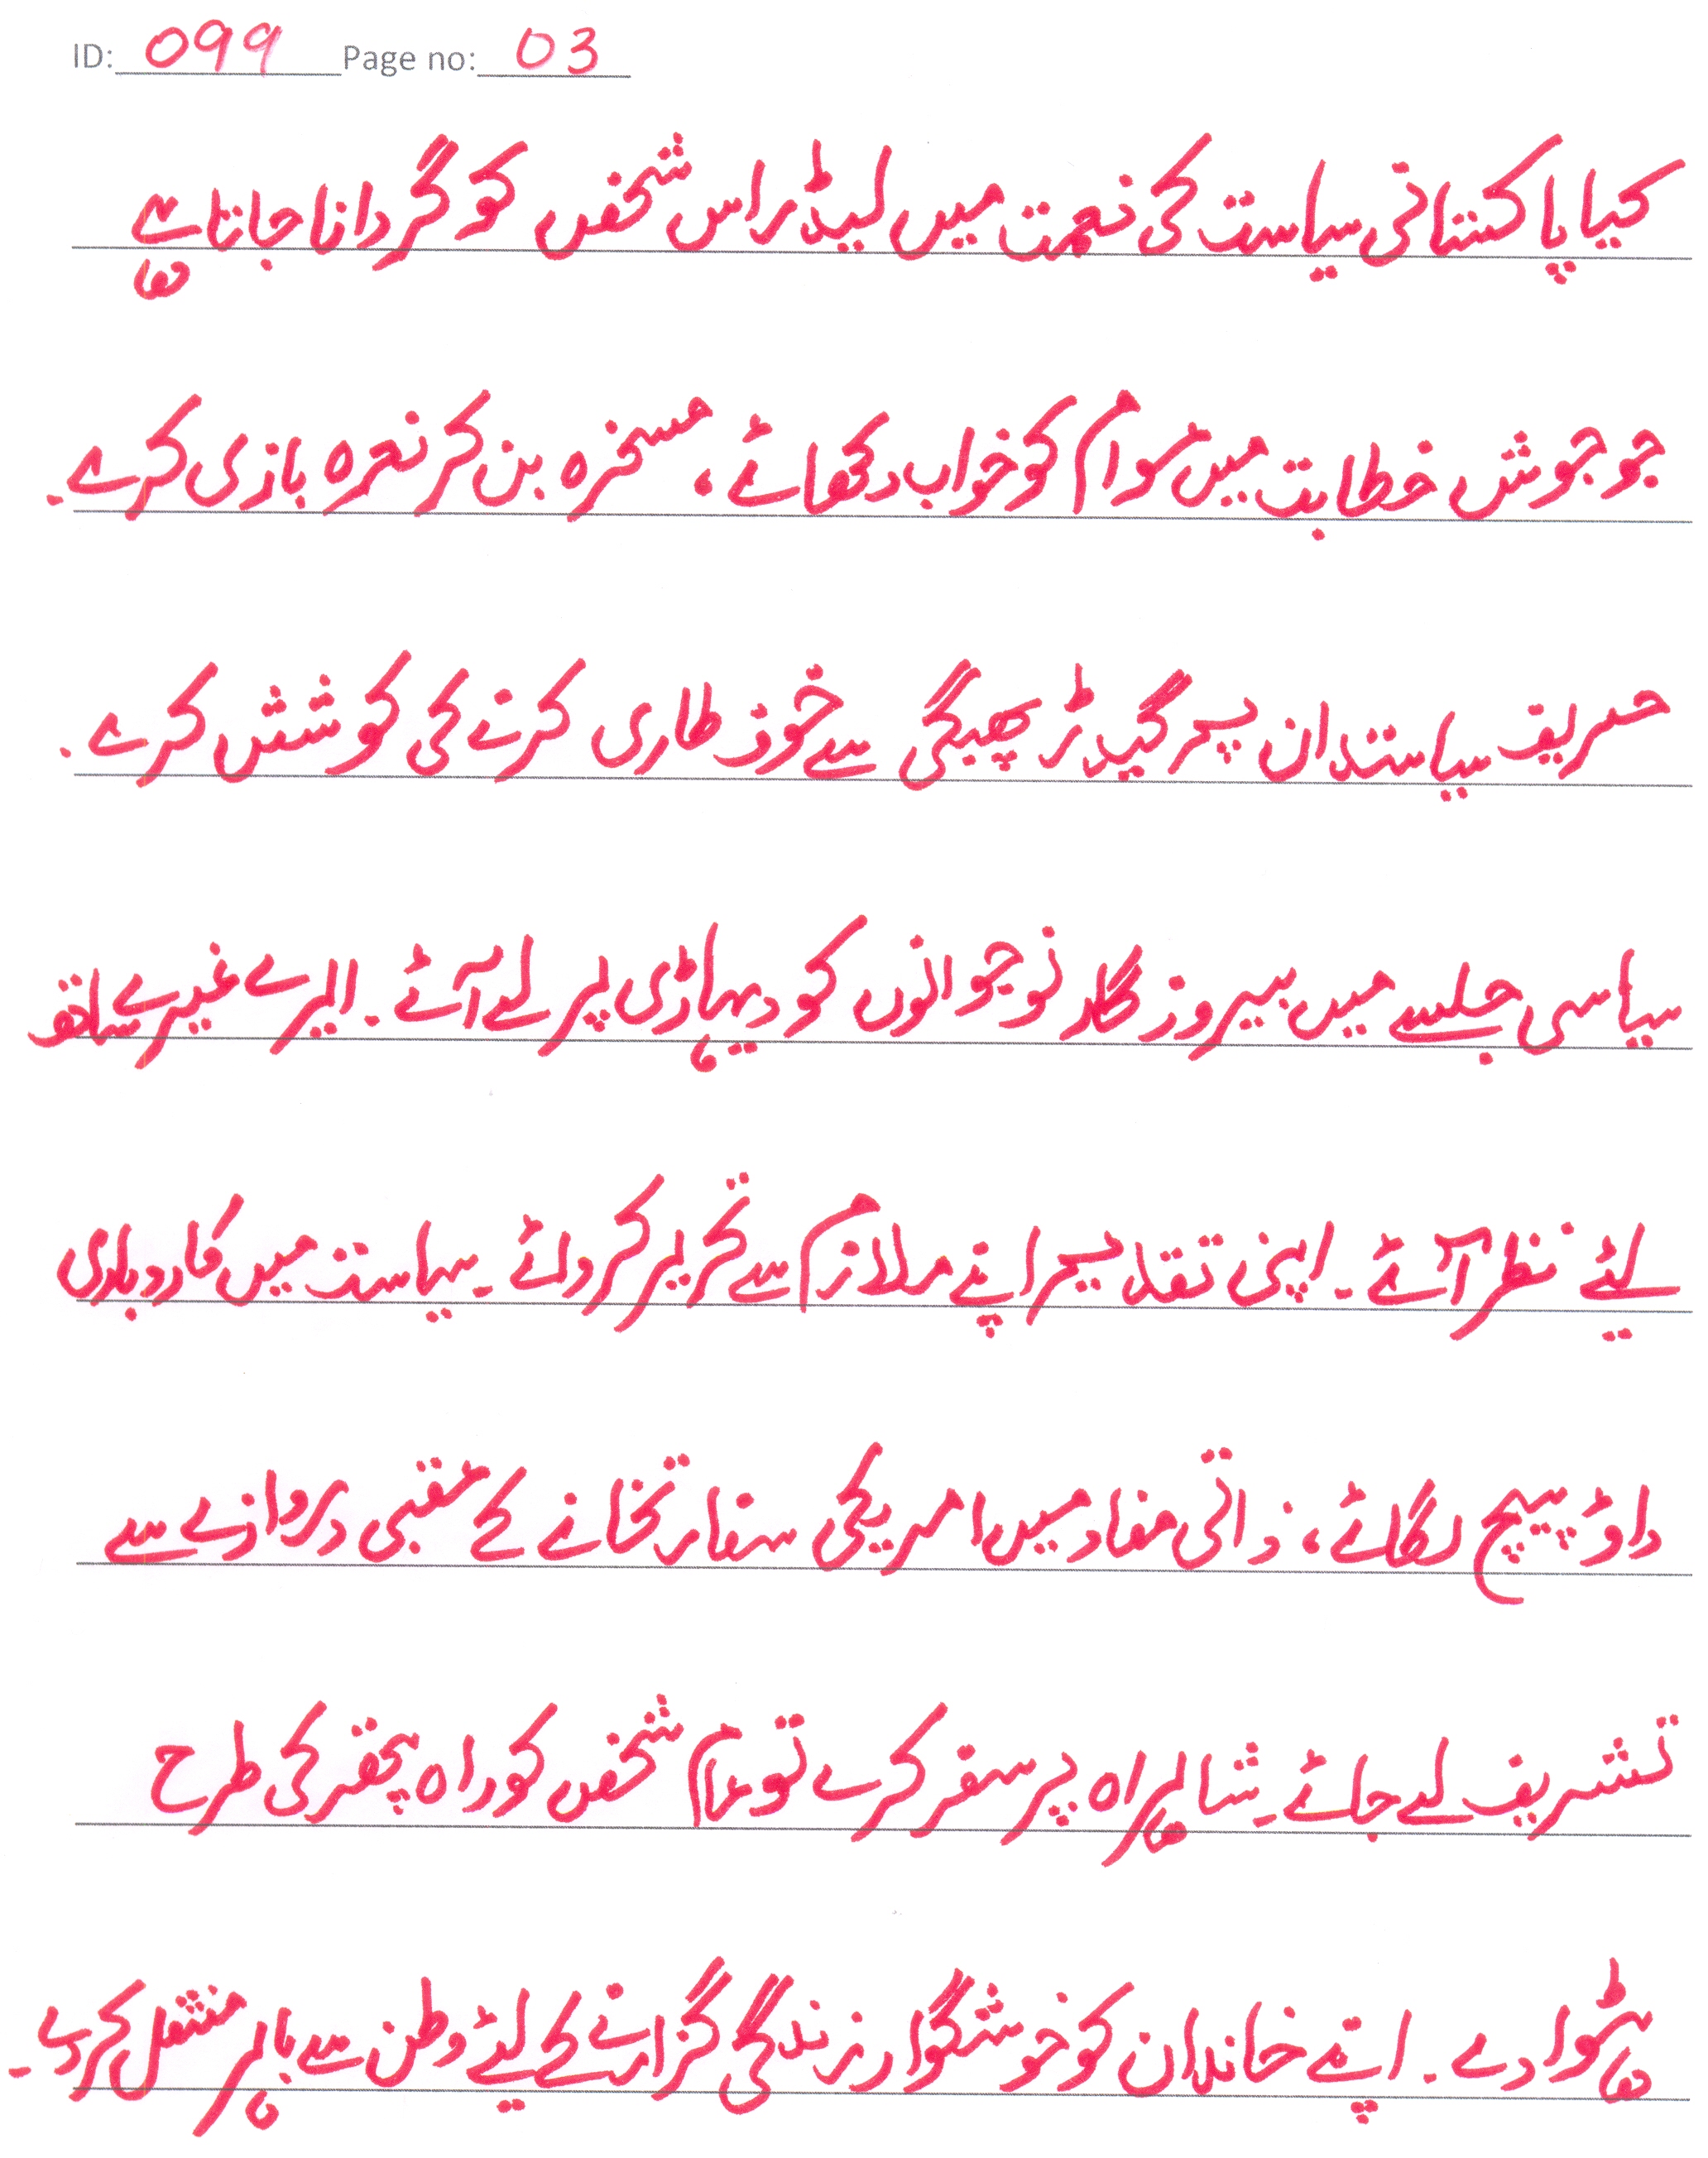 ID: 099 Page no: 03
کیا پاکستانی سیاست کی نعمت میں لیڈر اس شخص کو گردانا جاتا ہے
جو جوش خطابت میں عوام کو خواب دکھائے، مسخرہ بن کر نعرہ بازی کرے۔
حریف سیاستدان پر گیدڑ بھپکی سے خوف طاری کرنے کی کوشش کرے۔
سیاسی جلسے میں بیروزگار نوجوانوں کو دیہاڑی پر لے آئے۔ ایرے غیرے ساتھ
لئے نظر آئے۔ اپنی تقدیر اپنے ملازم سے تحریر کروائے۔ سیاست میں کاروباری
داؤ پیچ لگائے، ذاتی مفاد میں امریکی سفارتخانے کے عقبی دروازے سے
تشریف لے جائے۔ شاہراہ پر سفر کرے تو عام شخص کو راہ پتھر کی طرح
ہٹوا دے۔ اپنے خاندان کو خوشگوار زندگی گزارنے کے لیئے وطن سے باہر منتقل کر دے۔